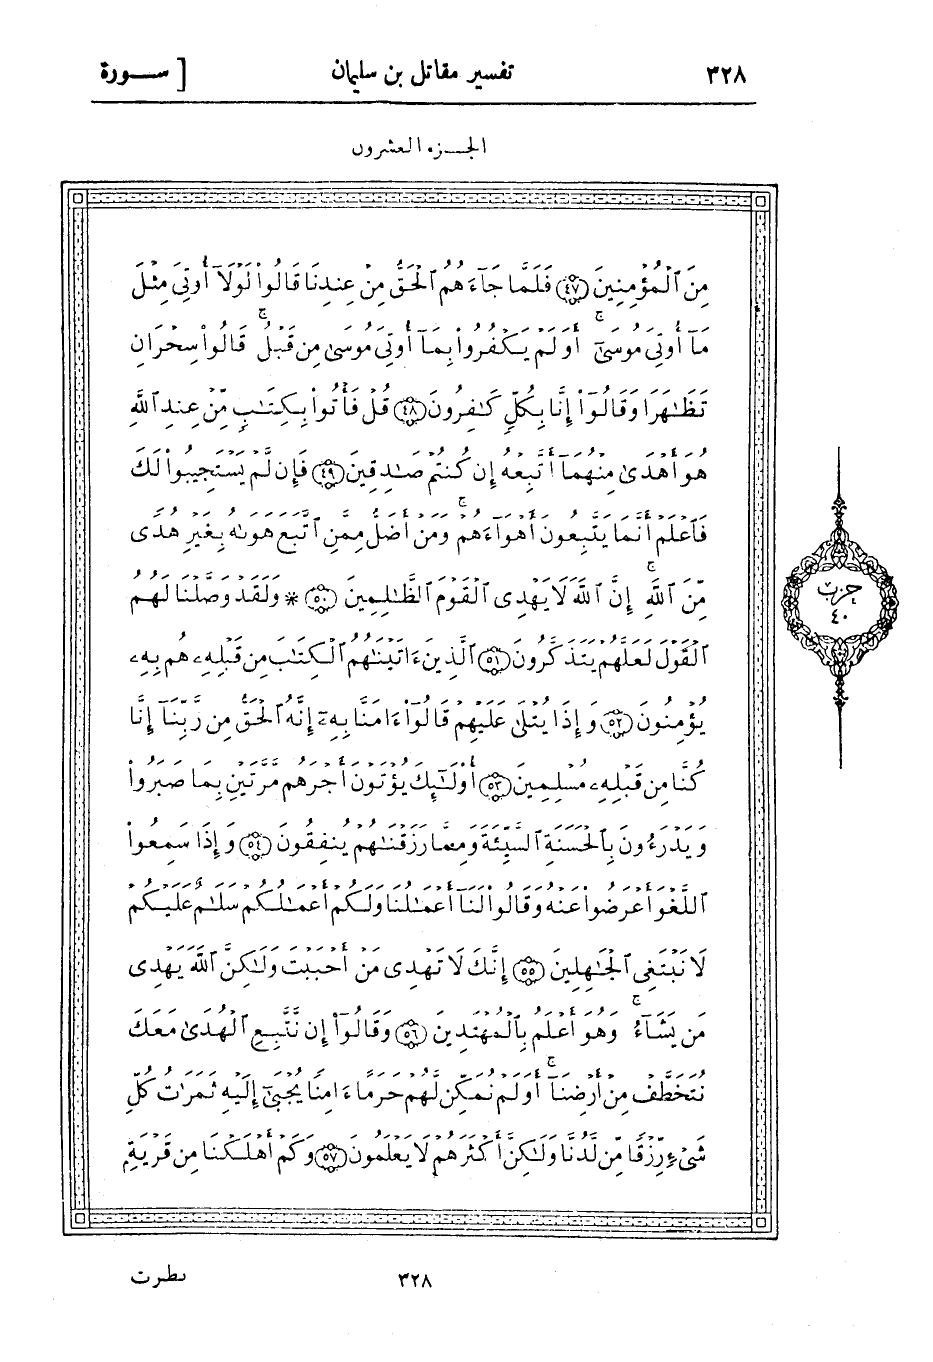 ٣٢٨ تفسير مقاتل بن سليمان [ ســورة
الجــزء العشرون
مِنَ ٱلْمُؤْمِنِينَ ﴿٤٧﴾ فَلَمَّا جَآءَهُمُ ٱلْحَقُّ مِنْ عِندِنَا قَالُوا۟ لَوْلَآ أُوتِىَ مِثْلَ
مَآ أُوتِىَ مُوسَىٰٓ ۚ أَوَلَمْ يَكْفُرُوا۟ بِمَآ أُوتِىَ مُوسَىٰ مِن قَبْلُ ۚ قَالُوا۟ سِحْرَانِ
تَظَٰهَرَا وَقَالُوٓا۟ إِنَّا بِكُلٍّ كَٰفِرُونَ ﴿٤٨﴾ قُلْ فَأْتُوا۟ بِكِتَٰبٍ مِّنْ عِندِ ٱللَّهِ
هُوَ أَهْدَىٰ مِنْهُمَآ أَتَّبِعْهُ إِن كُنتُمْ صَٰدِقِينَ ﴿٤٩﴾ فَإِن لَّمْ يَسْتَجِيبُوا۟ لَكَ
فَٱعْلَمْ أَنَّمَا يَتَّبِعُونَ أَهْوَآءَهُمْ ۚ وَمَنْ أَضَلُّ مِمَّنِ ٱتَّبَعَ هَوَىٰهُ بِغَيْرِ هُدًى
مِّنَ ٱللَّهِ ۚ إِنَّ ٱللَّهَ لَا يَهْدِى ٱلْقَوْمَ ٱلظَّٰلِمِينَ ﴿٥٠﴾ * وَلَقَدْ وَصَّلْنَا لَهُمُ
ٱلْقَوْلَ لَعَلَّهُمْ يَتَذَكَّرُونَ ﴿٥١﴾ ٱلَّذِينَ ءَاتَيْنَٰهُمُ ٱلْكِتَٰبَ مِن قَبْلِهِۦ هُم بِهِۦ
يُؤْمِنُونَ ﴿٥٢﴾ وَإِذَا يُتْلَىٰ عَلَيْهِمْ قَالُوٓا۟ ءَامَنَّا بِهِۦٓ إِنَّهُ ٱلْحَقُّ مِن رَّبِّنَآ إِنَّا
كُنَّا مِن قَبْلِهِۦ مُسْلِمِينَ ﴿٥٣﴾ أُو۟لَٰٓئِكَ يُؤْتَوْنَ أَجْرَهُم مَّرَّتَيْنِ بِمَا صَبَرُوا۟
وَيَدْرَءُونَ بِٱلْحَسَنَةِ ٱلسَّيِّئَةَ وَمِمَّا رَزَقْنَٰهُمْ يُنفِقُونَ ﴿٥٤﴾ وَإِذَا سَمِعُوا۟
ٱللَّغْوَ أَعْرَضُوا۟ عَنْهُ وَقَالُوا۟ لَنَآ أَعْمَٰلُنَا وَلَكُمْ أَعْمَٰلُكُمْ سَلَٰمٌ عَلَيْكُمْ
لَا نَبْتَغِى ٱلْجَٰهِلِينَ ﴿٥٥﴾ إِنَّكَ لَا تَهْدِى مَنْ أَحْبَبْتَ وَلَٰكِنَّ ٱللَّهَ يَهْدِى
مَن يَشَآءُ ۚ وَهُوَ أَعْلَمُ بِٱلْمُهْتَدِينَ ﴿٥٦﴾ وَقَالُوٓا۟ إِن نَّتَّبِعِ ٱلْهُدَىٰ مَعَكَ
نُتَخَطَّفْ مِنْ أَرْضِنَآ ۚ أَوَلَمْ نُمَكِّن لَّهُمْ حَرَمًا ءَامِنًا يُجْبَىٰٓ إِلَيْهِ ثَمَرَٰتُ كُلِّ
شَىْءٍ رِّزْقًا مِّن لَّدُنَّا وَلَٰكِنَّ أَكْثَرَهُمْ لَا يَعْلَمُونَ ﴿٥٧﴾ وَكَمْ أَهْلَكْنَا مِن قَرْيَةٍۭ
حزب
٤٠
٣٢٨ بطرت